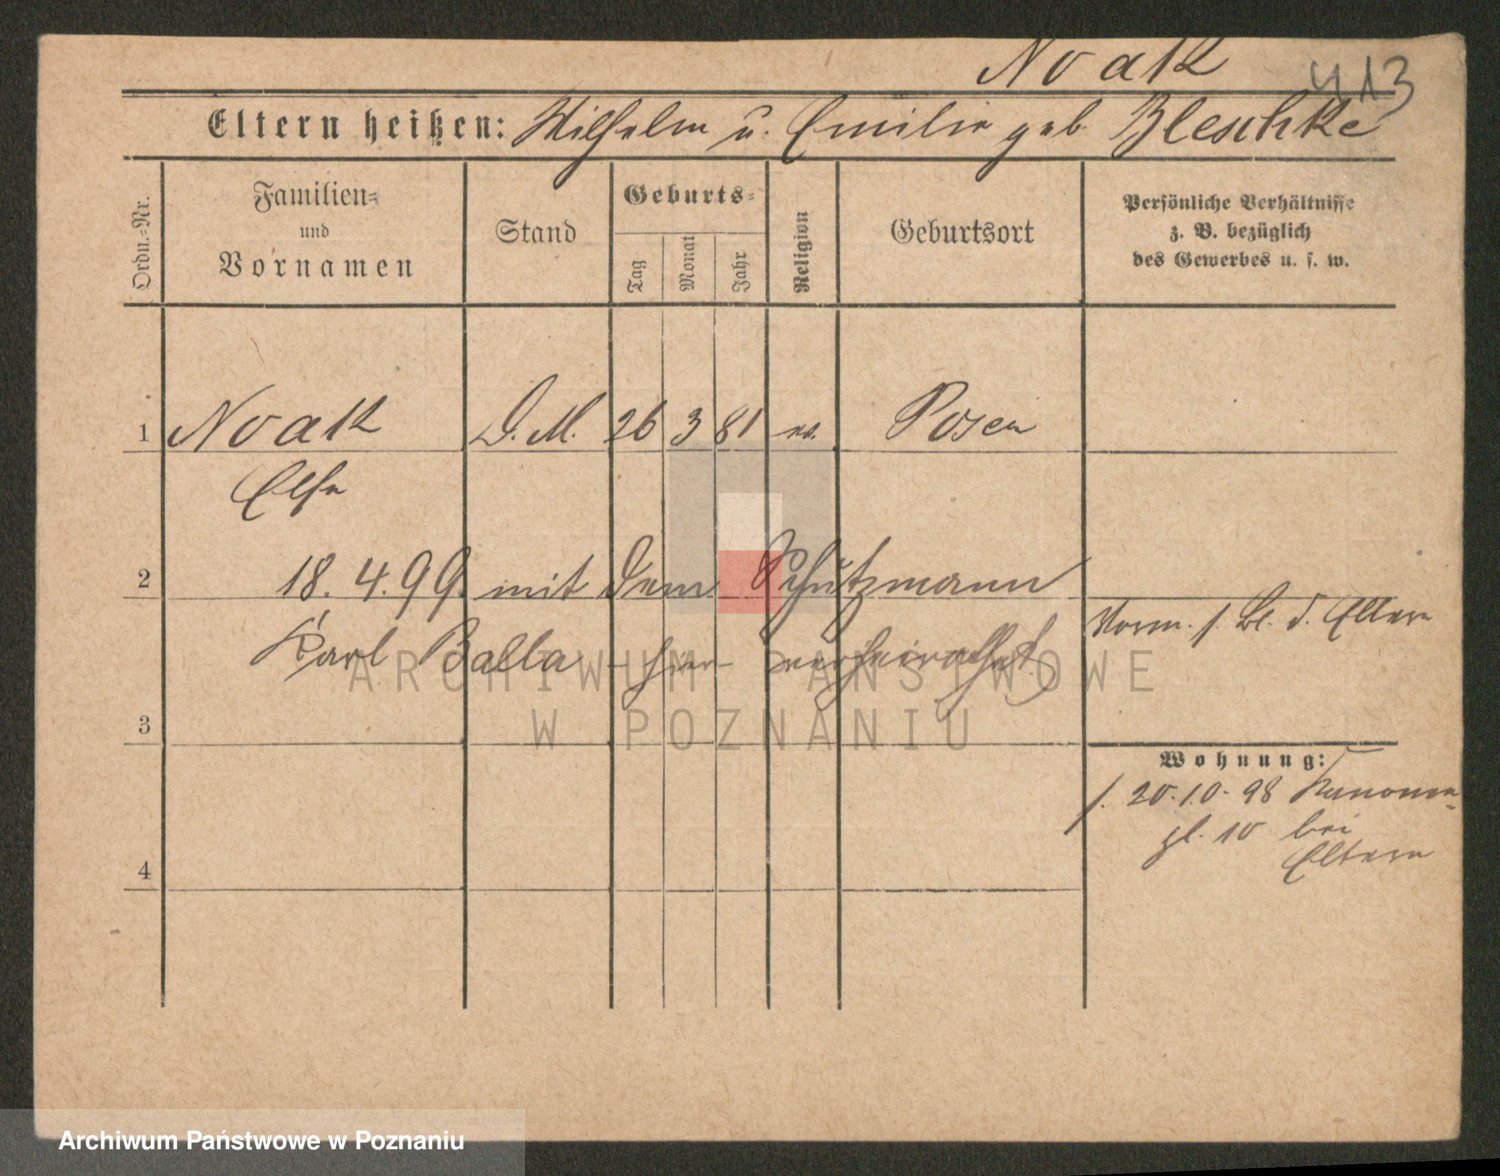 Noak
413
Eltern heißen: Wilhelm u. Emilie geb. Bleschke
Ordn.-Nr.
Familien-
und
Vornamen
Stand
Geburts-
Tag
Monat
Jahr
Religion
Geburtsort
Persönliche Verhältnisse
z. B. bezüglich
des Gewerbes u. s. w.
1 Noak D. M. 26 3 81 ev. Posen
Else
2 18. 4. 99. mit dem Schutzmann
Karl Balla hier verheirathet.
Vorm. s. Bl. d. Eltern
3
Wohnung:
s. 20.10.98 Kanonen-
pl. 10 bei
Eltern
4
ARCHIWUM PAŃSTWOWE
W POZNANIU
Archiwum Państwowe w Poznaniu